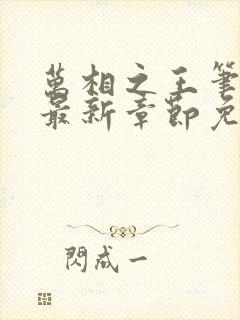 萬相之王筆
最新章節免
閃成一